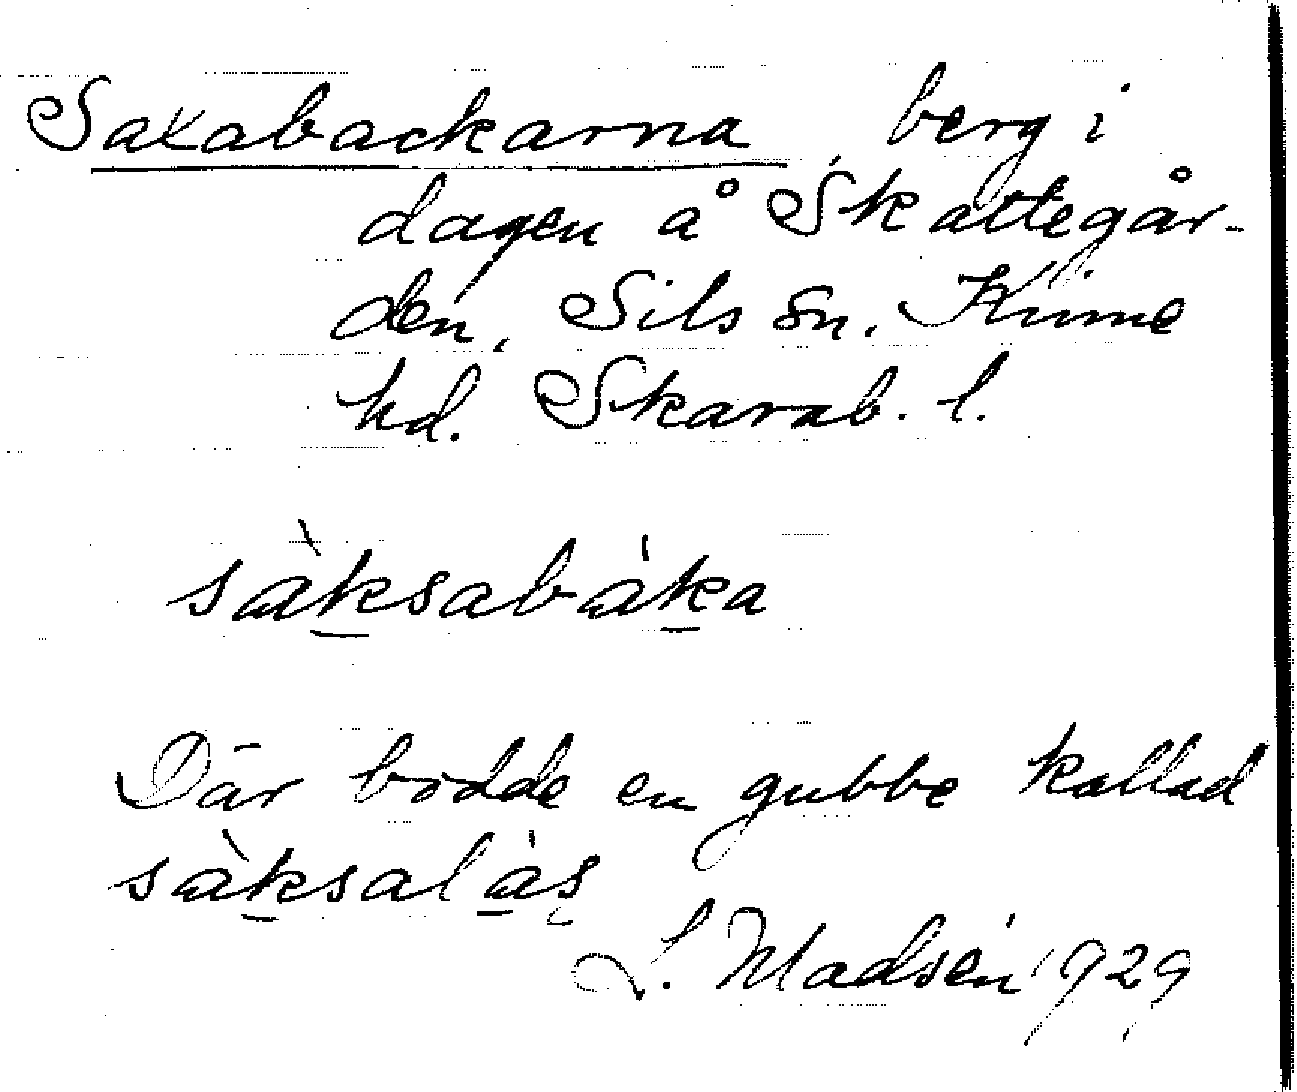 Saxabackarna berg i
dagen å Skattegår-
den, Sils sn. Kinne
hd. Skarab. l.
sàksabàka
Där bodde en gubbe kallad
sàksalàs
L. Madsén 1929